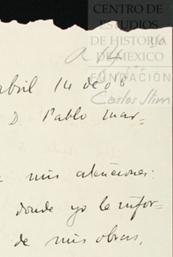 CENTRO DE
ESTUDIOS
DE HISTORIA
DE MEXICO
FUNDACIÓN
Carlos Slim
abril 14 de 08
D. Pablo Mar-
mis atenciones:
donde yo le infor-
de mis obras,